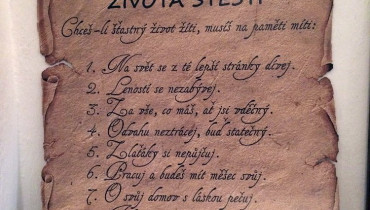 ŽIVOTA ŠTĚSTÍ
Chceš-li šťastný život žíti, musíš na paměti míti:
1. Na svět se z té lepší stránky dívej.
2. Leností se nezabývej.
3. Za vše, co máš, ať jsi vděčný.
4. Odvahu neztrácej, buď statečný.
5. Zlaťáky si nepůjčuj.
6. Pracuj a budeš mít měšec svůj.
7. O svůj domov s láskou pečuj.